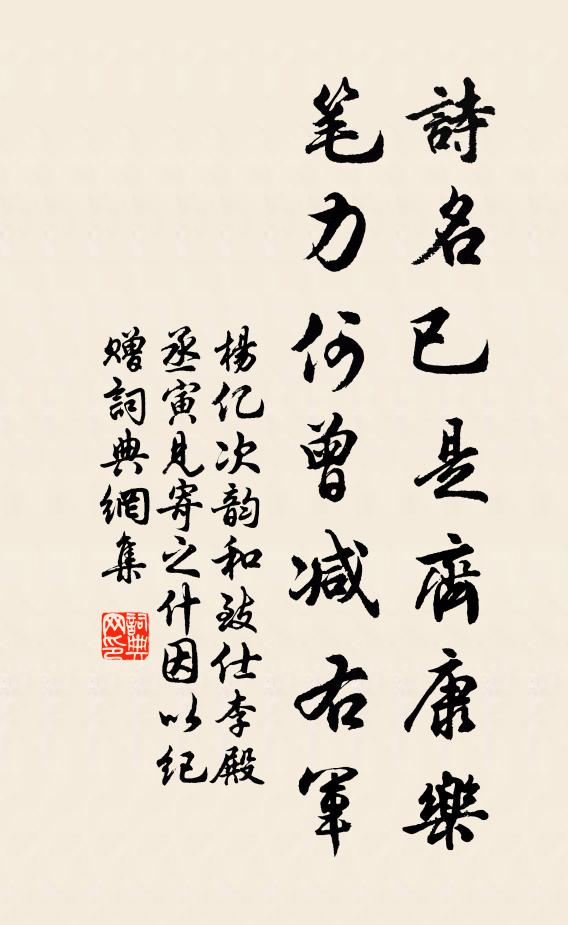 詩名已是齊康樂
笔力何曾減右軍
楊亿次韵和致仕李殿
丞寅見寄之什因以纪
赠詞典網集
詞典网印